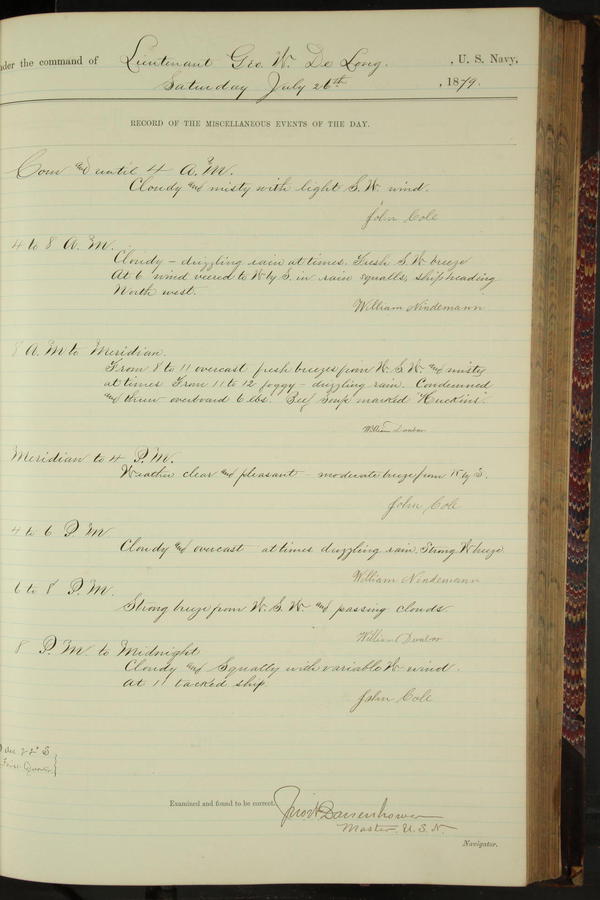 nder the command of Lieutenant Geo. W. De Long. , U. S. Navy,
Saturday July 26th , 1879.
RECORD OF THE MISCELLANEOUS EVENTS OF THE DAY.
Com and until 4 A.M.
Cloudy and misty with light S. W. wind.
John Cole
4 to 8 A. M.
Cloudy - drizzling rain at times. Fresh S. W. breeze
At 6 wind veered to W by S. in rain squalls, ship heading
North west.
William Nindemann
8 A. M to Meridian.
From 8 to 11 overcast fresh breezes from W. S. W. and misty
at times From 11 to 12 foggy - drizzling rain. Condemned
and threw overboard 6 lbs. Beef Soup marked "Huckins".
William Dunbar
Meridian to 4 P. M.
Weather clear and pleasant - moderate breeze from W by S.
John Cole
4 to 6 P. M
Cloudy and overcast at times drizzling rain. Strong W breeze
William Nindemann
6 to 8 P. M.
Strong breeze from W. S. W. and passing clouds
William Dunbar
8 P. M. to Midnight
Cloudy and Squally with variable W wind.
At 11 tacked ship
John Cole
22° S
First Quarter
Examined and found to be correct. Danenhower
Master, U. S. N.
Navigator.